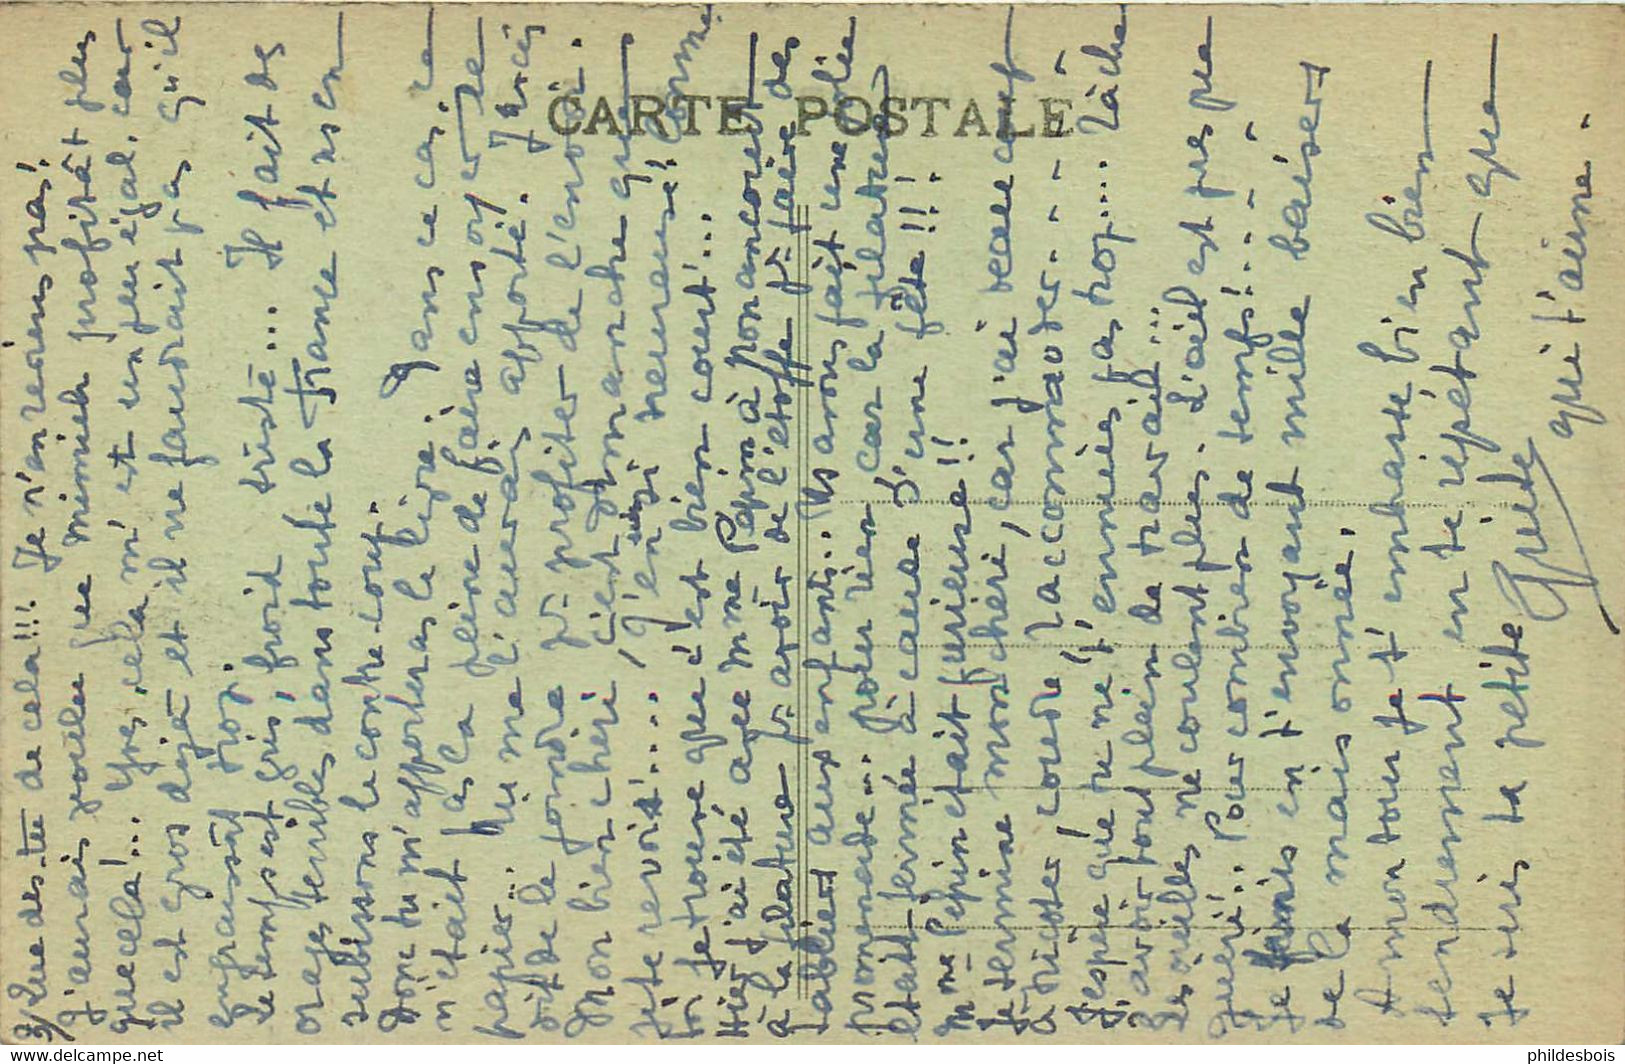 3/ Que dis-tu de cela!!! Je n'en reviens pas!
J'aurais voulu que mimich profitât plus
que cela!... Yves, cela m'est un peu égal, car
il est gros déjà et il ne faudrait pas qu'il
engraissât trop.
Le temps est gris, froid triste... Il fait des
orages terribles dans toute la France et nous en
subissons le contre-coup.
Donc tu m'apporteras le livre. Dans ce cas, ce
n'était pas la peine de faire envoyer le
papier... tu me l'aurais apporté.
soit de le joindre pr. profiter de l'envoi.
Mon bien chéri, c'est dimanche que
je te revois!.... J'en suis heureuse! comme
tu je trouve que c'est bien court!...
Hier j'ai été avec Mme Pépin à Nonancourt
à la filature pr. avoir de l'étoffe pr. faire des
tabliers aux enfants... Ns avons fait une jolie
promenade... pour rien car la filature
était fermée à cause d'une fête!!!
Mme Pépin était furieuse!!
Je termine mon chéri, car j'ai beaucoup
à tricoter, coudre, raccommoder - - - -
J'espère que tu ne t'ennuies pas trop.... tâche
d'avoir tout plein de travail...
Les oreilles ne coulent plus. L'œil est presque
guéri!.. Pour combien de temps!.. - - -
Je finis en t'envoyant mille baisers
de la maisonnée.
A mon tour je t'embrasse bien bien
tendrement en te répétant que
Je suis ta petite
qui t'aime.
CARTE POSTALE
phildesbois
www.delcampe.net